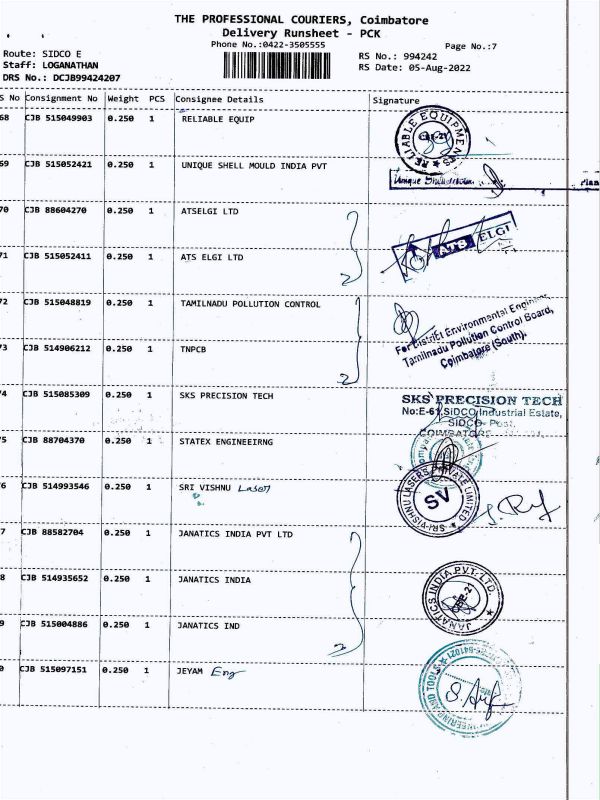 THE PROFESSIONAL COURIERS, Coimbatore
Delivery Runsheet - PCK
Phone No.:0422-3505555
Page No.:7
Route: SIDCO E
RS No.: 994242
Staff: LOGANATHAN
RS Date: 05-Aug-2022
DRS No.: DCJB99424207
S No Consignment No Weight PCS Consignee Details Signature
68 CJB 515049903 0.250 1 RELIABLE EQUIP
RELIABLE EQUIPMENTS
69 CJB 515052421 0.250 1 UNIQUE SHELL MOULD INDIA PVT
Unique Shell
Plan
70 CJB 88604270 0.250 1 ATSELGI LTD
ATS ELGI
71 CJB 515052411 0.250 1 ATS ELGI LTD
2
72 CJB 515048819 0.250 1 TAMILNADU POLLUTION CONTROL
For District Environmental Engineer,
Tamilnadu Pollution Control Board,
Coimbatore (South).
73 CJB 514906212 0.250 1 TNPCB
2
74 CJB 515085309 0.250 1 SKS PRECISION TECH
SKS PRECISION TECH
No:E-61,SIDCO Industrial Estate,
SIDCO- Post,
COIMBATORE
75 CJB 88704370 0.250 1 STATEX ENGINEEIRNG
76 CJB 514993546 0.250 1 SRI VISHNU Laser
SRI VISHNU LASERS PRIVATE LIMITED
SV
77 CJB 88582704 0.250 1 JANATICS INDIA PVT LTD
78 CJB 514935652 0.250 1 JANATICS INDIA
JANATICS INDIA PVT. LTD.
79 CJB 515004886 0.250 1 JANATICS IND
3
0 CJB 515097151 0.250 1 JEYAM Eng
ENGINEERING AND TOOLS